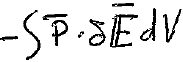 -∫P̅·δE̅dV